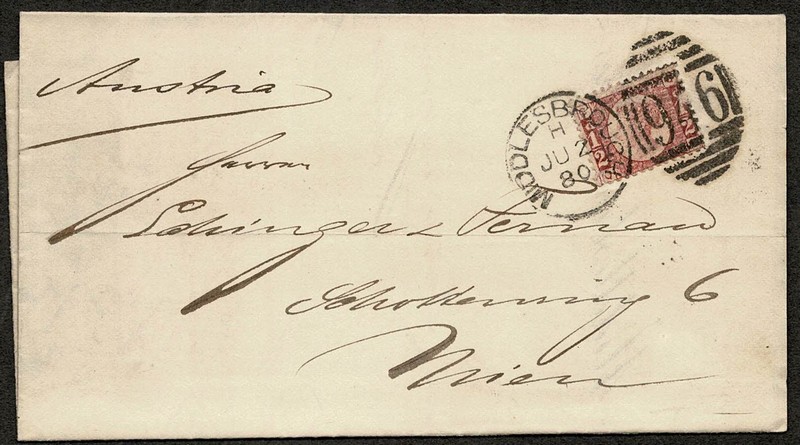 Austria
Herren
Schinger & Fernau
Schottenring 6
Wien
MIDDLESBRO
H
JU 2
80
96